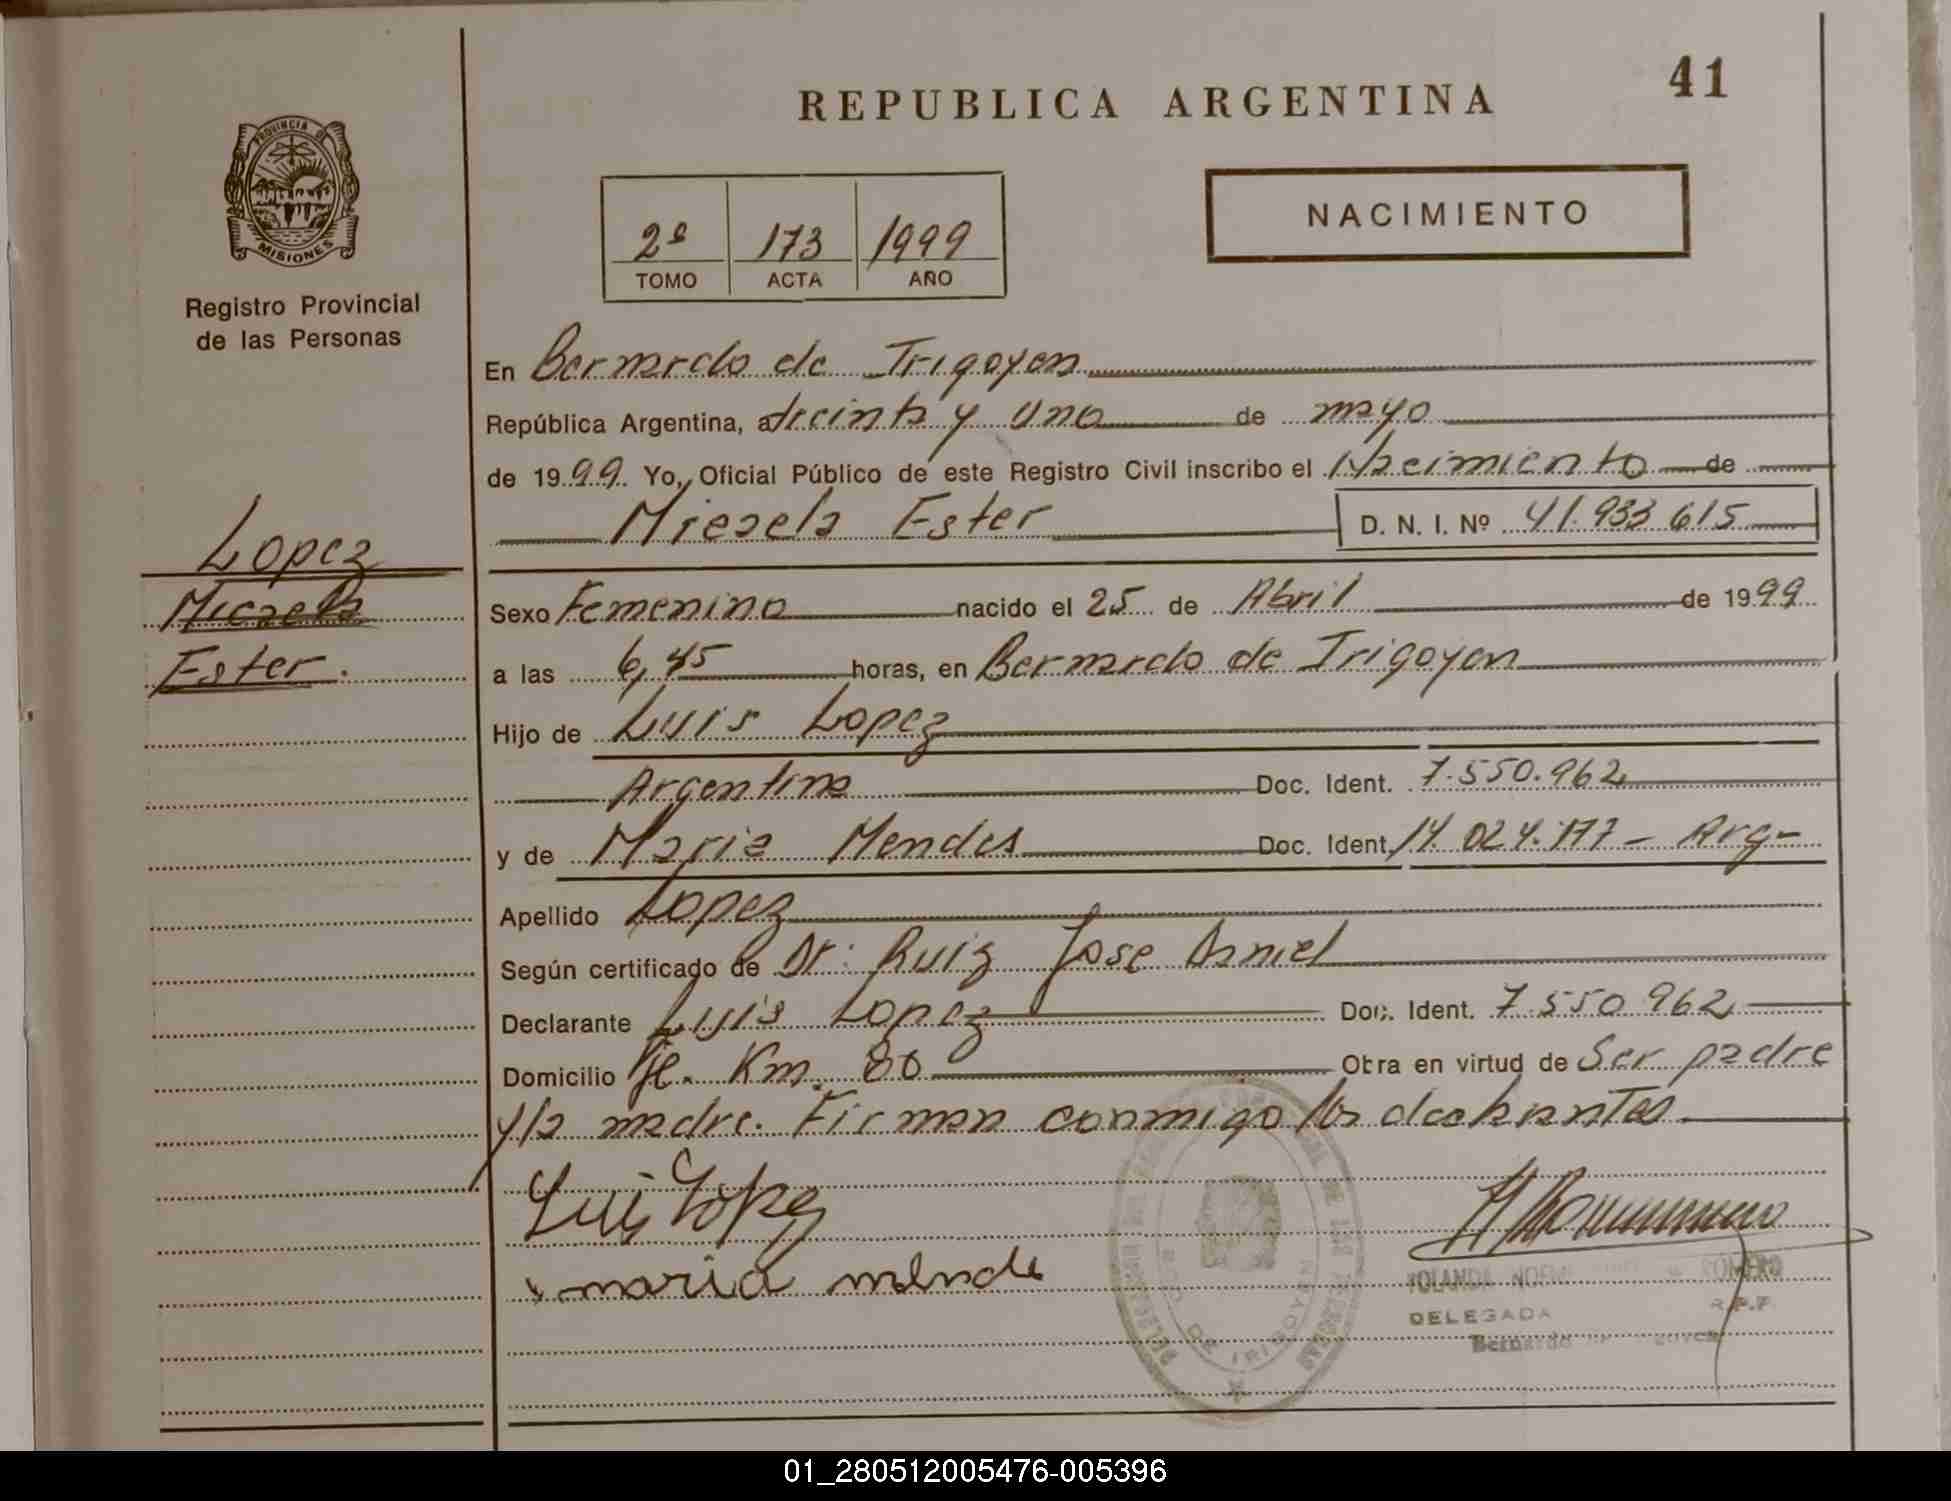 41
REPUBLICA ARGENTINA
PROVINCIA DE
MISIONES
Registro Provincial
de las Personas
2º 173 1999
TOMO ACTA AÑO
NACIMIENTO
En Bernardo de Irigoyen
República Argentina, a treinta y uno de mayo
de 1999 Yo, Oficial Público de este Registro Civil inscribo el Nacimiento de
Micaela Ester D. N. I. Nº 41.933.615
Lopez
Micaela
Ester.
Sexo Femenino nacido el 25 de Abril de 1999
a las 6,45 horas, en Bernardo de Irigoyen
Hijo de Luis Lopez
Argentino Doc. Ident. 7.550.962
y de Maria Mendes Doc. Ident. 14.024.177 - Arg-
Apellido Lopez
Según certificado de Dr: Ruiz Jose Daniel
Declarante Luis Lopez Doc. Ident. 7.550.962
Domicilio Km. 80 Otra en virtud de Ser padre
y la madre. Firman conmigo los declarantes
Luis Lopez
maria mende
YOLANDA ROMERO
DELEGADA R.P.P
Bernardo
DE IRIGOYEN
01_280512005476-005396